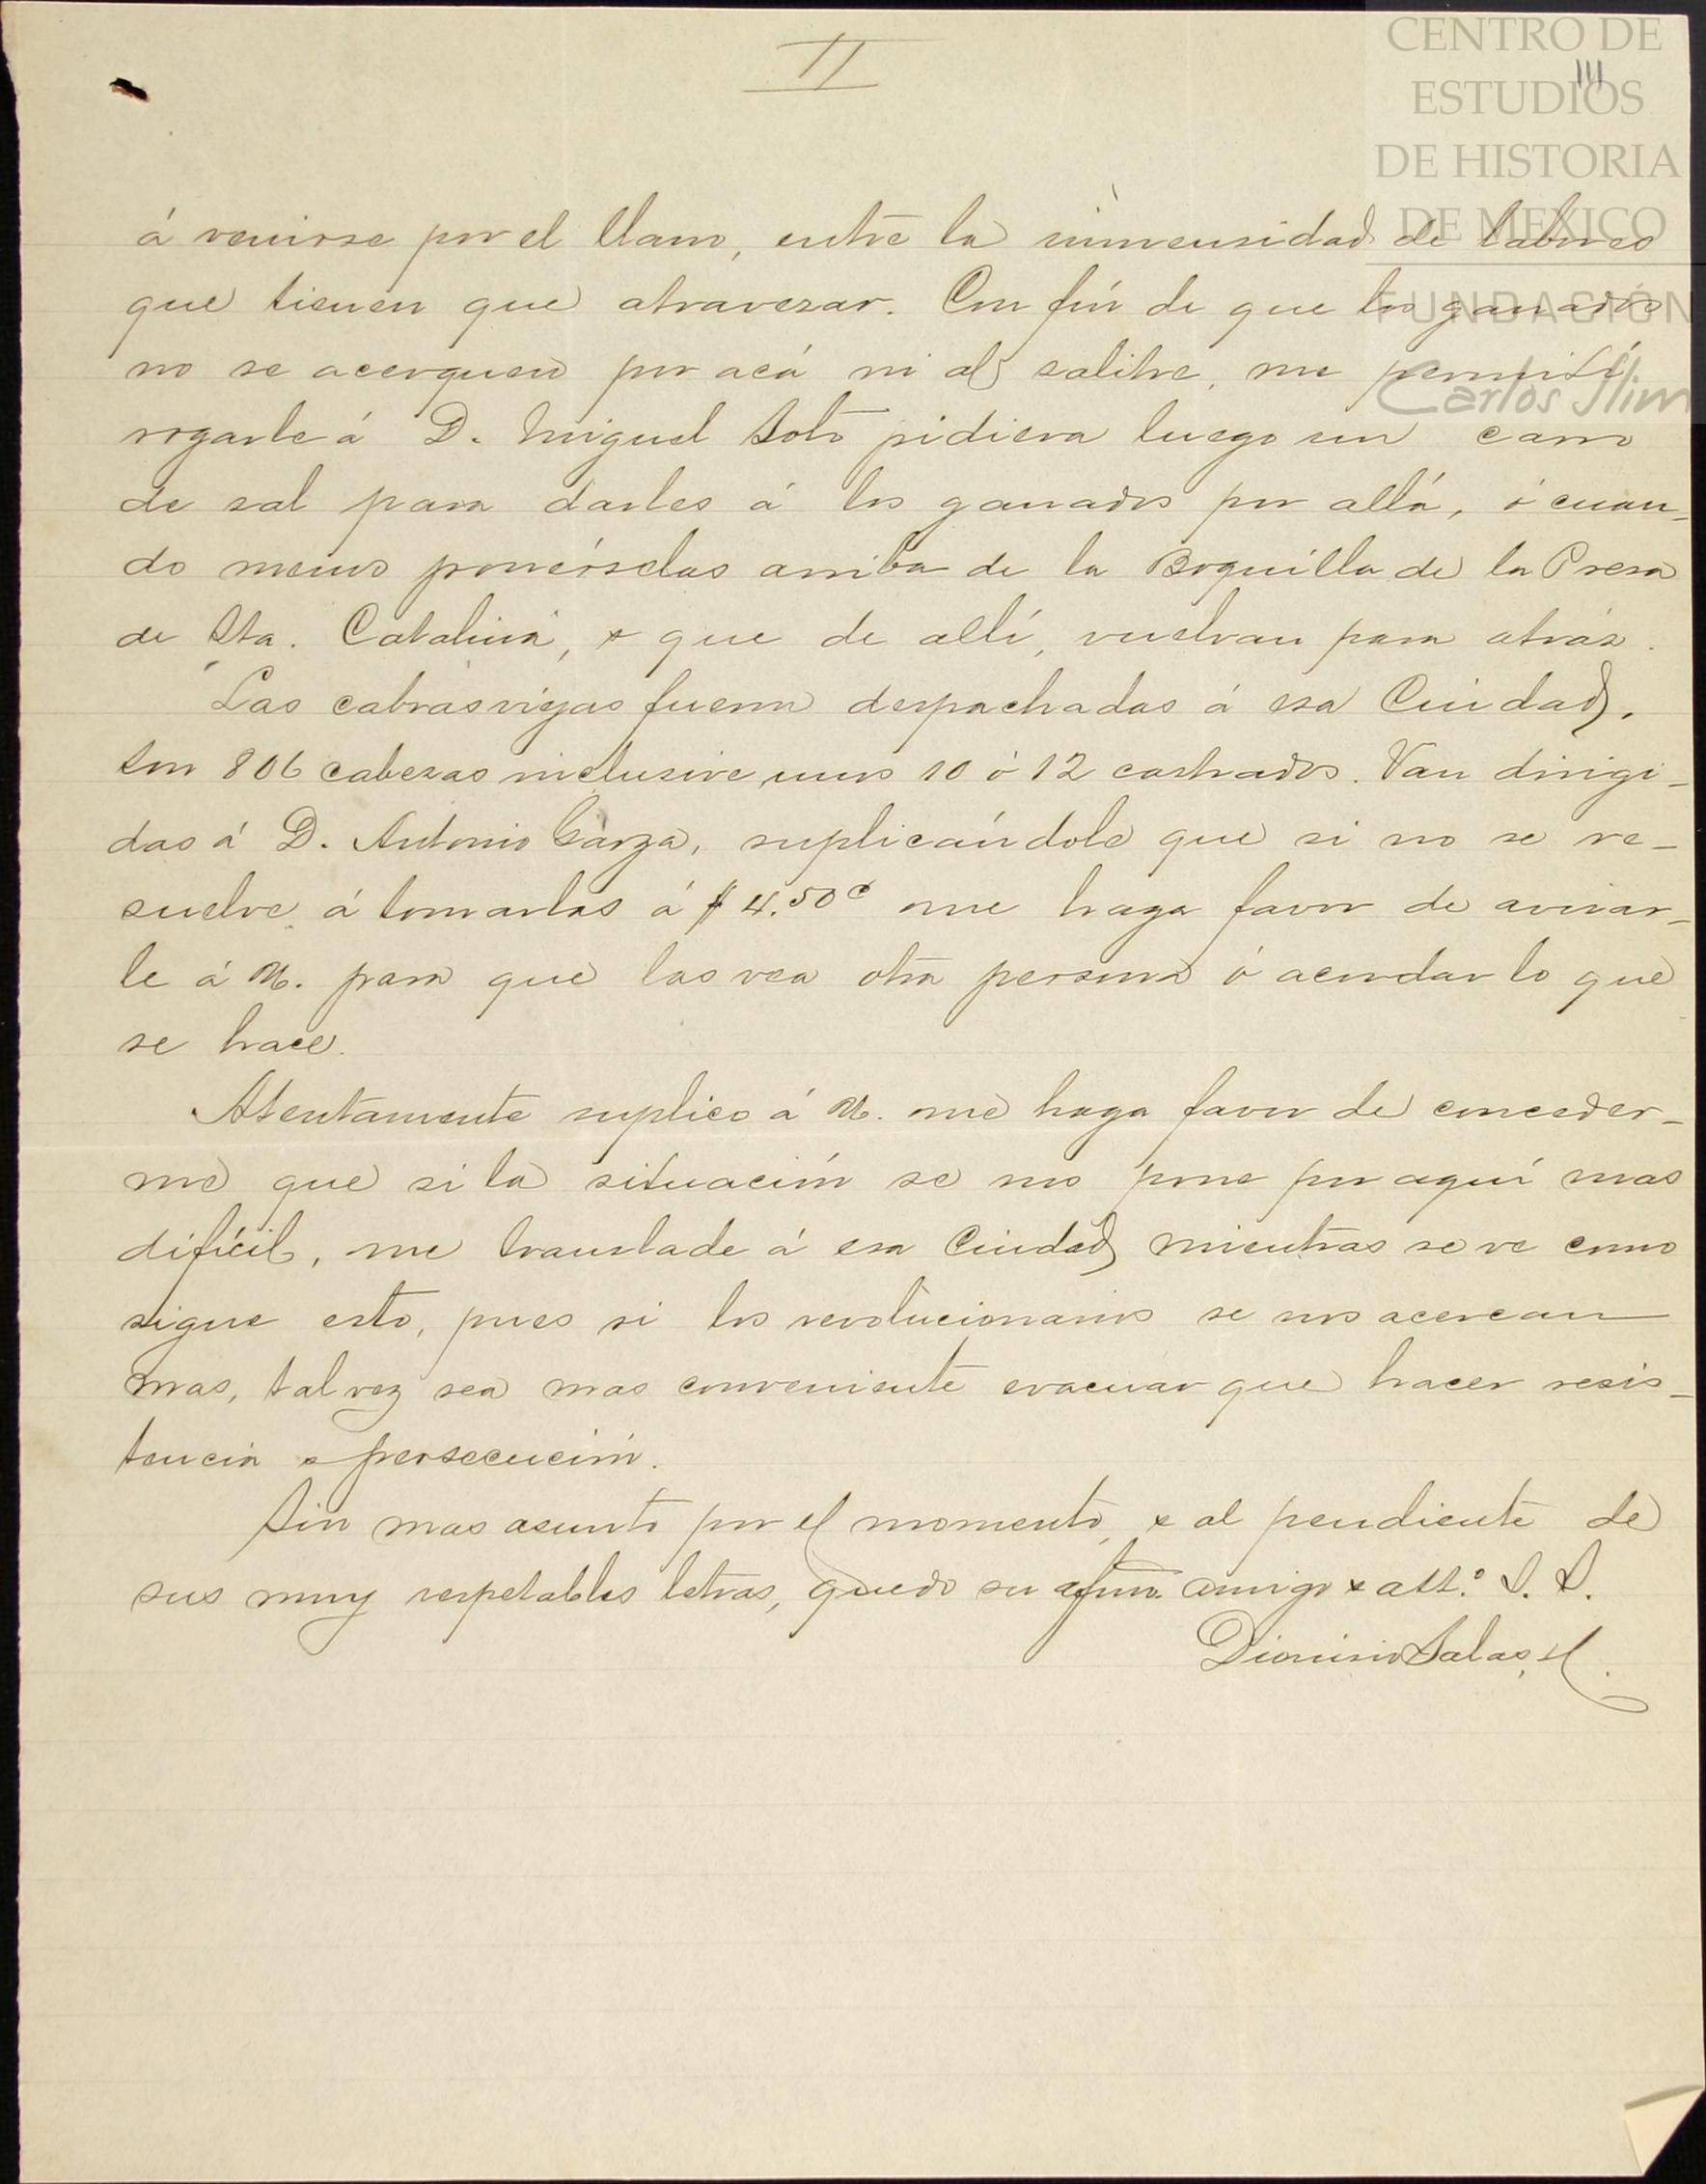 II
CENTRO DE
ESTUDIOS
DE HISTORIA
DE MEXICO
FUNDACIÓN
Carlos Slim
á venirse por el llano, entre la inmensidad de labores
que tienen que atravezar. Con fin de que los ganados
no se acerquen por acá ni al salitre, me permití
rogarle á D. Miguel Soto pidiera luego un carro
de sal para darles á los ganados por allá, ó cuan-
do menos ponérselas arriba de la Boquilla de la Presa
de Sta. Catalina, y que de allí, vuelvan para atrás.
Las cabras vigas fueron despachadas á esa Ciudad,
son 806 cabezas inclusive unos 10 ó 12 castrados. Van dirigi-
das á D. Antonio Garza, suplicándole que si no se re-
suelve á tomarlas á $4.50 c me haga favor de avisar-
le á U. para que las vea otra persona ó acordar lo que
se hace.
Atentamente suplico á U. me haga favor de conceder-
me que si la situación se nos pone por aquí mas
difícil, me translade á esa Ciudad mientras se ve como
sigue esto, pues si los revolucionarios se nos acercan
mas, tal vez sea mas conveniente evacuar que hacer resis-
tencia y persecución.
Sin mas asunto por el momento, y al pendiente de
sus muy respetables letras, quedo su afmo. amigo y att.º S. S.
Dionisio Salas, H.